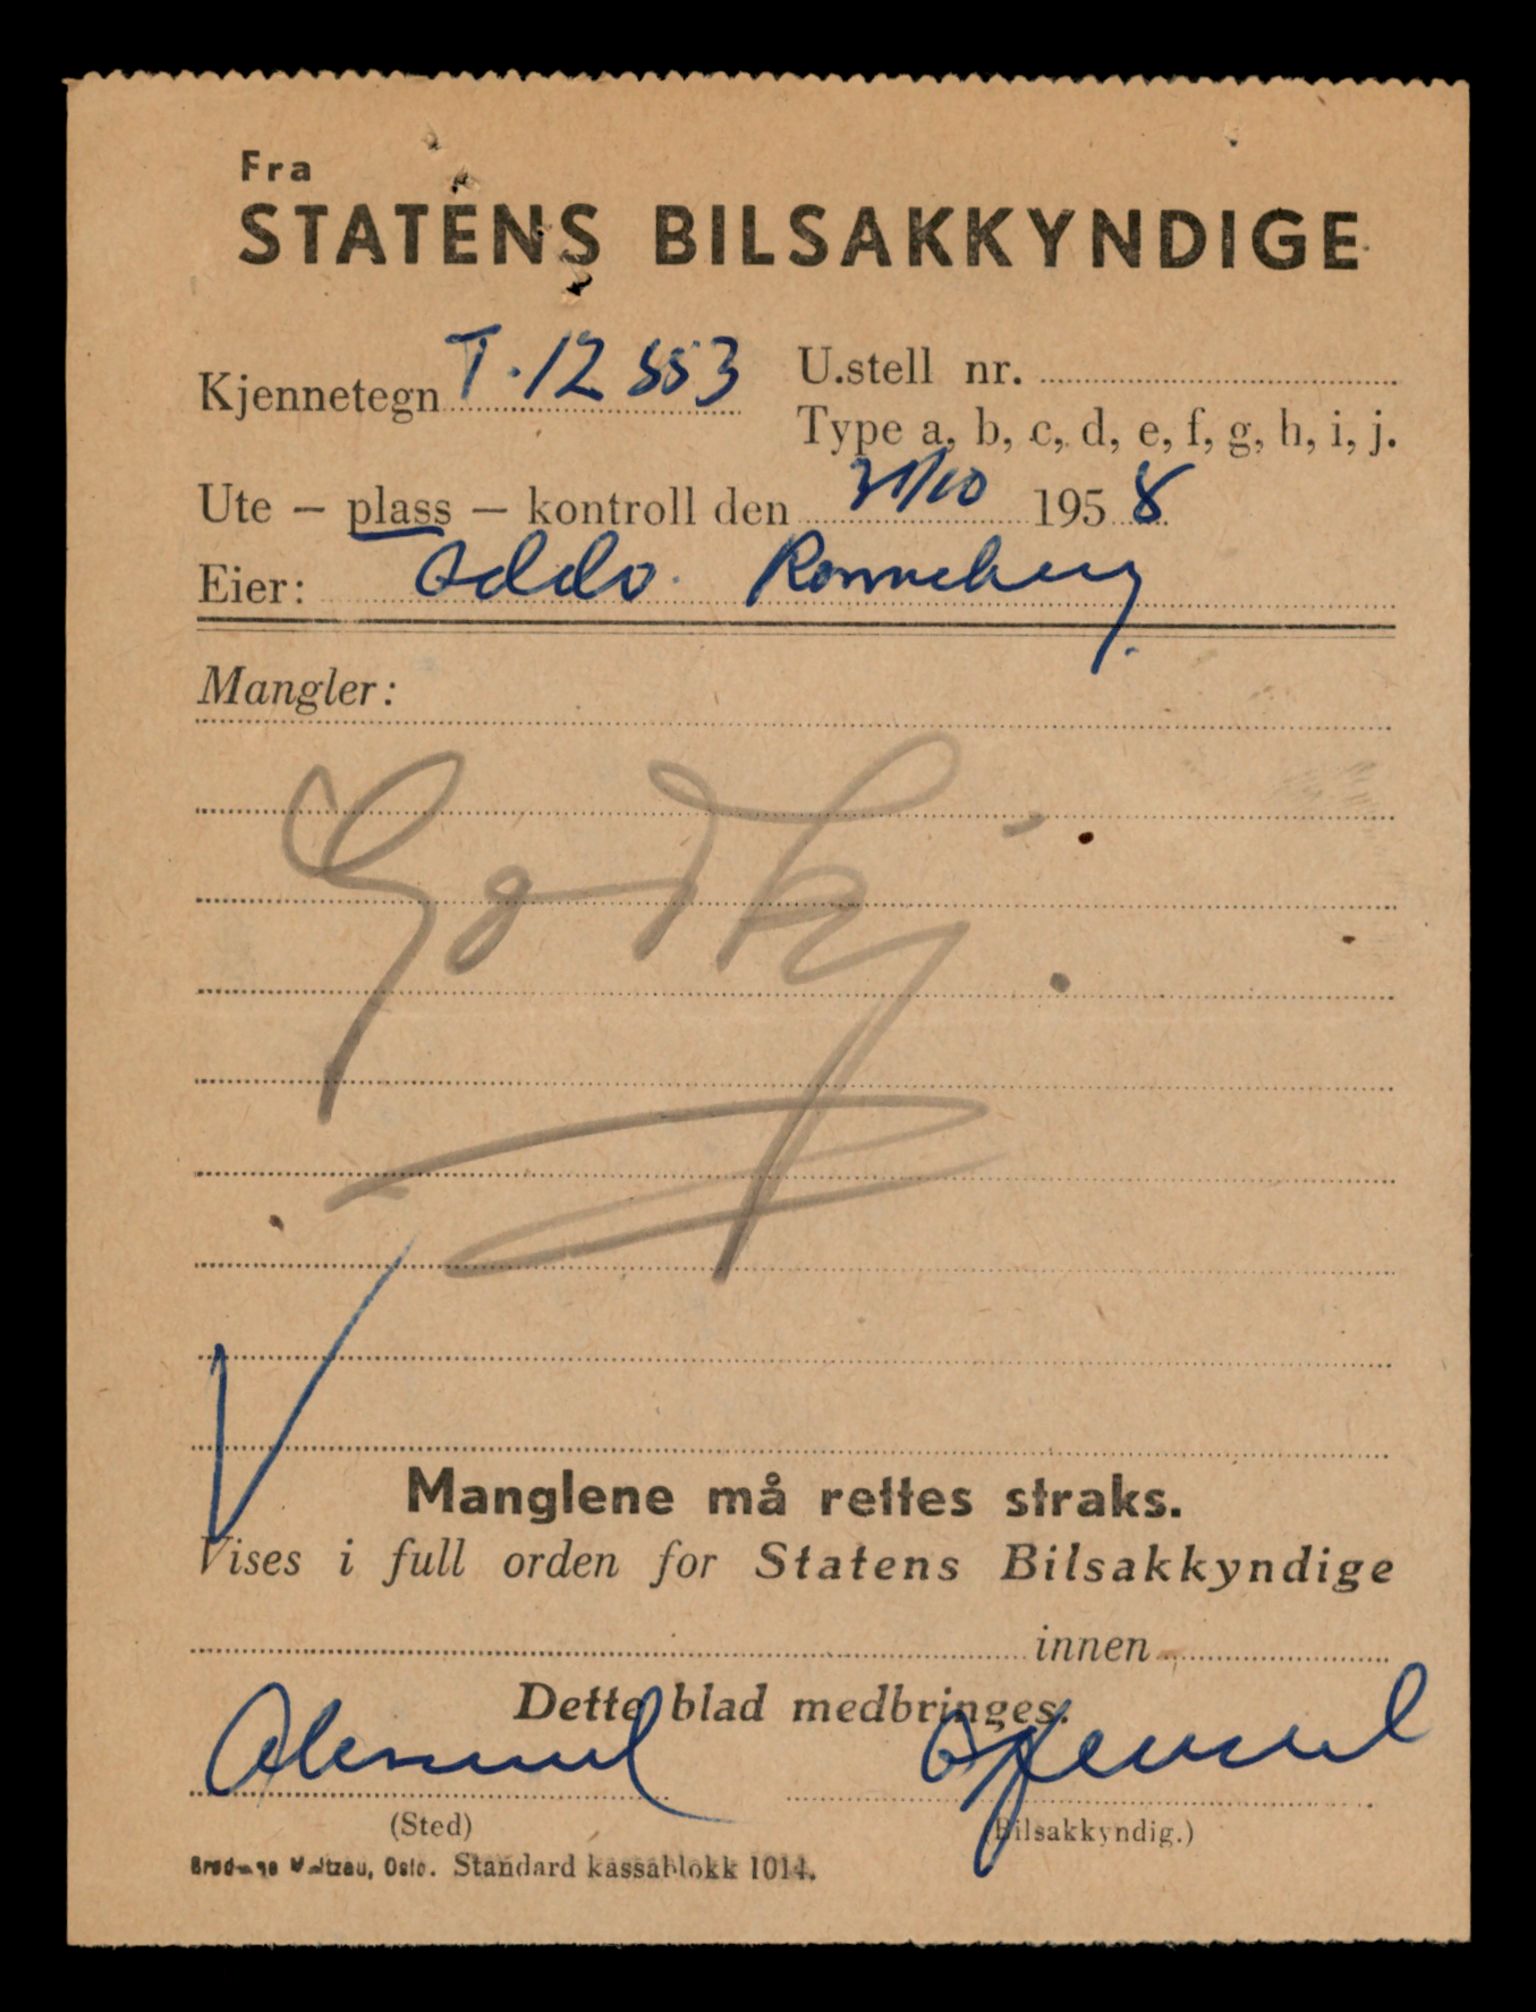 Fra
STATENS BILSAKKYNDIGE
Kjennetegn T.12553 U.stell nr.
Type a, b, c, d, e, f, g, h, i, j.
Ute — plass — kontroll den 31/10 1958
Eier: Oddv. Ronneberg
Mangler:
Godkj.
Manglene må rettes straks.
Vises i full orden for Statens Bilsakkyndige
innen
Dette blad medbringes.
Alesund
(Sted) (Bilsakkyndig.)
Oslo. Standard kassablokk 1014.